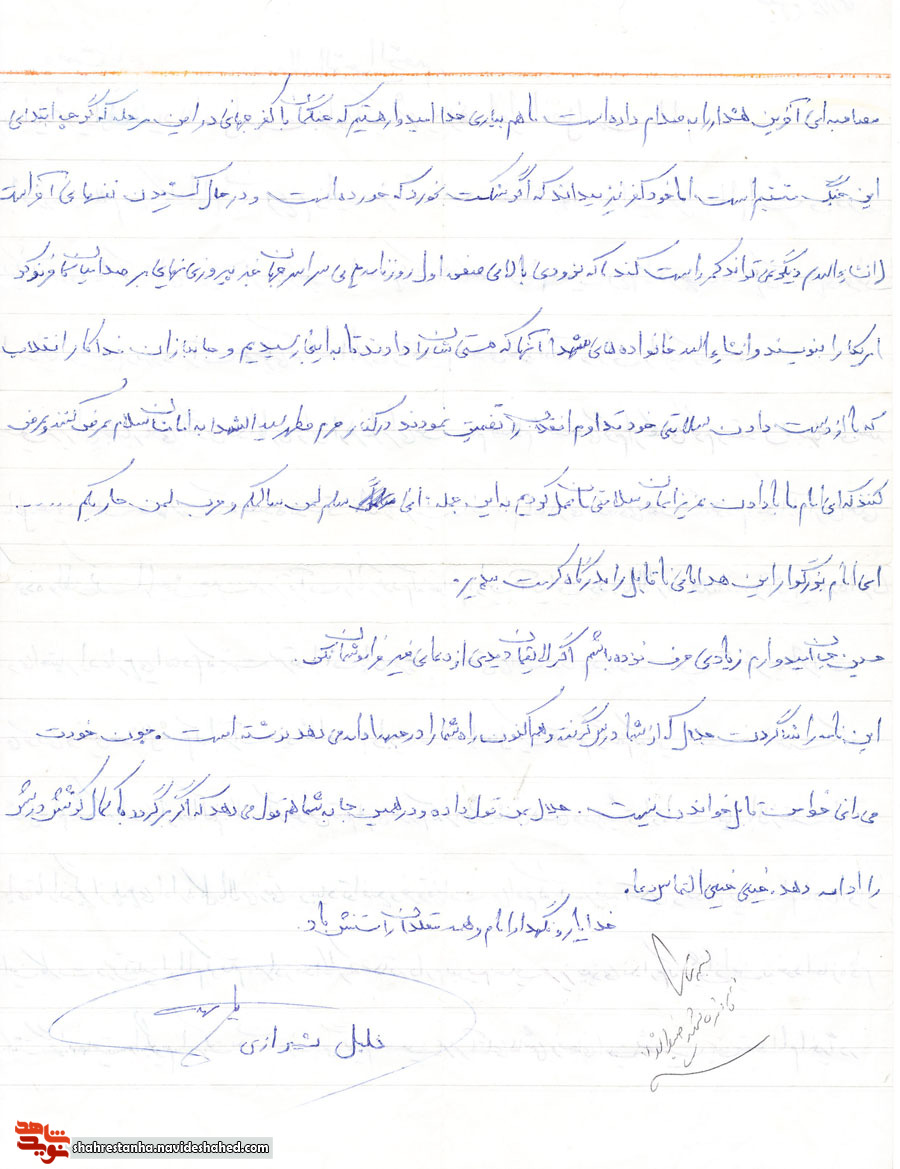 مصاحبه‌ای آخرین هشدار را به صدام داده است ما هم بیاری خدا امیدوار هستیم که جنگمان با کفر جهانی در این مرحله که گرچه ابتدای
این جنگ است اما خود کفر نیز میداند که اگر شکست نخورد که خورده است و در حال کشیدن نفسهای آخر است
انشاءالله دیگر نمی تواند کمر راست کند که بزودی بالای صفحه اول روزنامه های سراسر جهان خبر پیروزی نهایی بر صدامیان کافر نوکر
امریکا را بنویسند و انشاءالله خانواده های شهدا آنها که هستی شان را دادند تا به اینجا رسیدیم و جانبازان فداکار انقلاب
که با از دست دادن سلامتی خود تداوم انقلاب را تضمین نمودند در کنار حرم مطهر سیدالشهدا به امامشان سلام عرض کنند و عرض
کنند که ای امام ما با دادن عزیزانمان و سلامتی مان عمل کردیم به این جمله: انی سلم لمن سالمکم و حرب لمن حاربکم .....
ای امام بزرگوار این هدایای ناقابل را بدرگاه کرمت بپذیر.
حسین جان امیدوارم زیادی حرف نزده باشم اگر لایقمان دیدی از دعای خیر فراموشمان نکن.
این نامه را شاگردت جلال که از شما درس گرفته و هم اکنون راه شما را در جبهه ادامه می دهد نوشته است. چون خودت
می دانی خط من قابل خواندن نیست. جلال بمن قول داده و در همین جا به شما هم قول می دهد که اگر برگردد با کمال کوشش ورزش
را ادامه دهد. خیلی خیلی التماس دعا.
خدا یار و نگهدار امام و همه مقلدان راستینش باد.
خلیل شیرازی
بسمه تعالی
نوید شاهد
shahrestanha.navideshahed.com